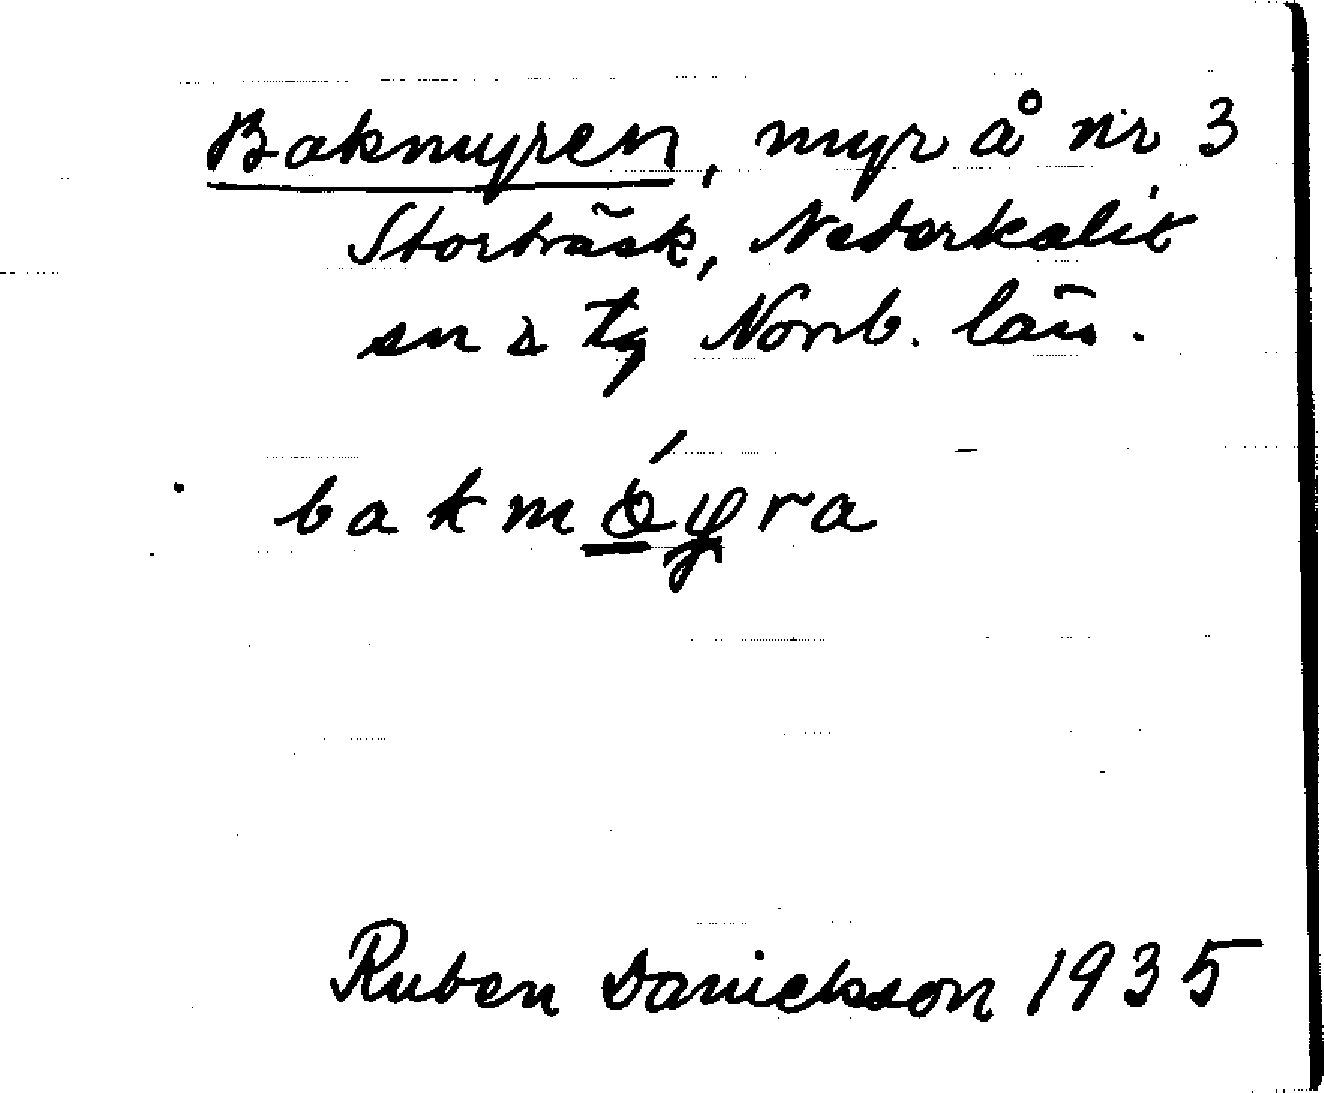 Bakmyren, myr å nr 3
Storträsk, Nederkalix
sn o tg Norrb. län.
bakmóyra
Ruben Danielsson 1935